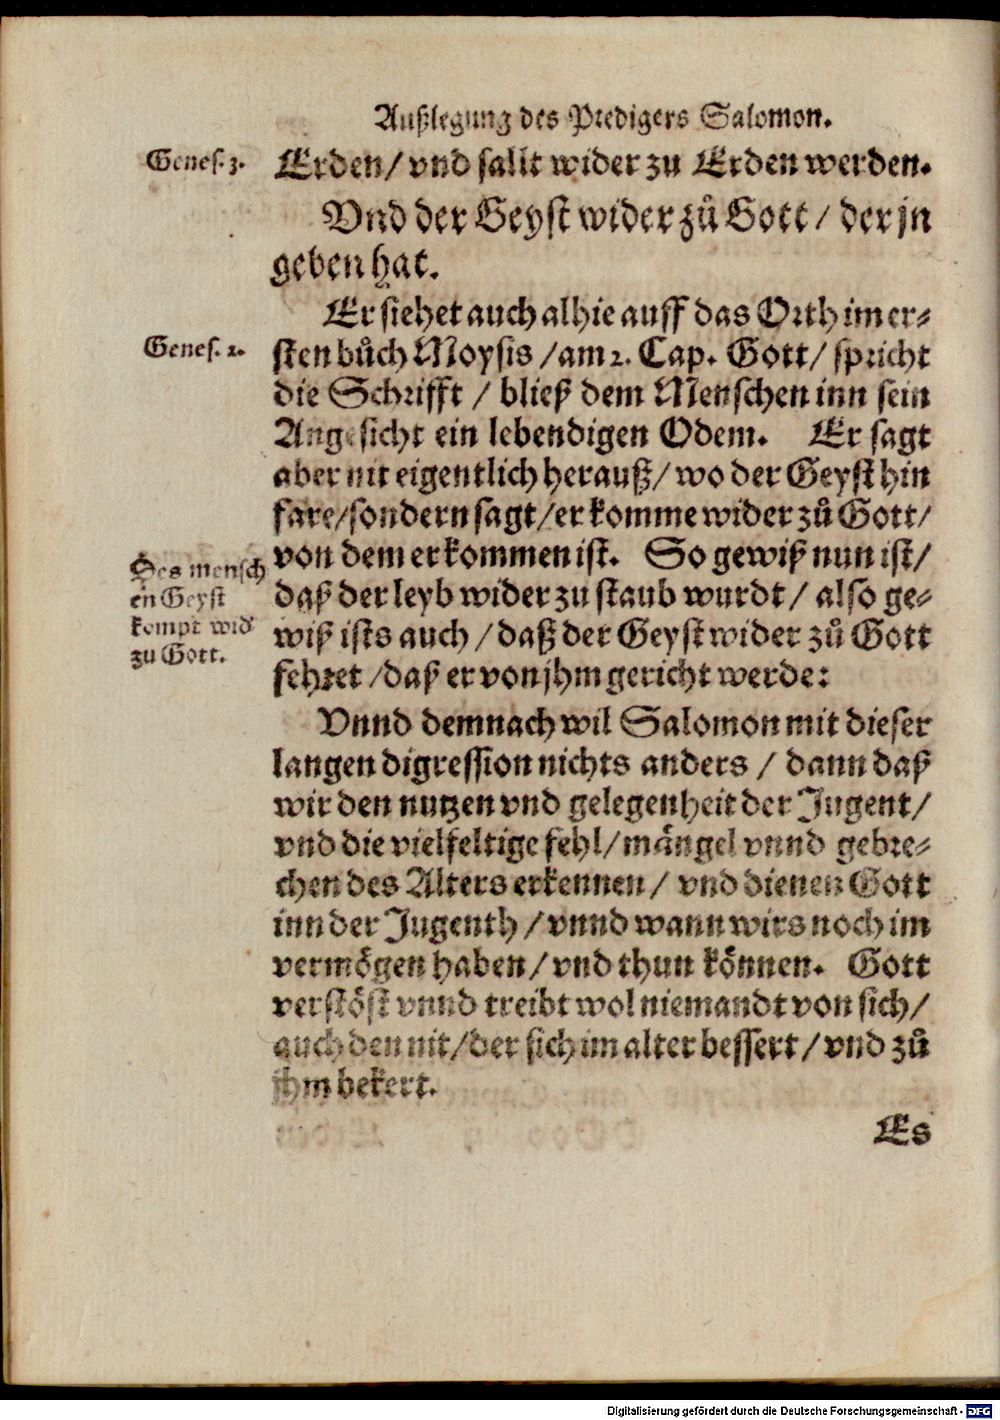 Außlegung des Predigers Salomon.
Genes. 3.
Erden / vnd sallt wider zu Erden werden.
Vnd der Geyst wider zů Gott / der jn
geben hat.
Er siehet auch alhie auff das Orth im er-
Genes. 2.
sten bůch Moysis / am 2. Cap. Gott / spricht
die Schrifft / bließ dem Menschen inn sein
Angesicht ein lebendigen Odem. Er sagt
aber nit eigentlich herauß / wo der Geyst hin
fare / sondern sagt / er komme wider zů Gott /
von dem er kommen ist. So gewiß nun ist /
Des mensch
en Geyst
kompt wid
zu Gott.
daß der leyb wider zu staub wurdt / also ge-
wiß ists auch / daß der Geyst wider zů Gott
kehret / daß er von jhm gericht werde:
Vnnd demnach wil Salomon mit dieser
langen digression nichts anders / dann daß
wir den nutzen vnd gelegenheit der Jugent /
vnd die vielfeltige fehl / mängel vnnd gebre-
chen des Alters erkennen / vnd dienen Gott
inn der Jugenth / vnnd wann wirs noch im
vermögen haben / vnd thun können. Gott
verstöst vnnd treibt wol niemandt von sich /
auch den nit / der sich im alter bessert / vnd zů
jhm bekert.
Es
Digitalisierung gefördert durch die Deutsche Forschungsgemeinschaft - DFG